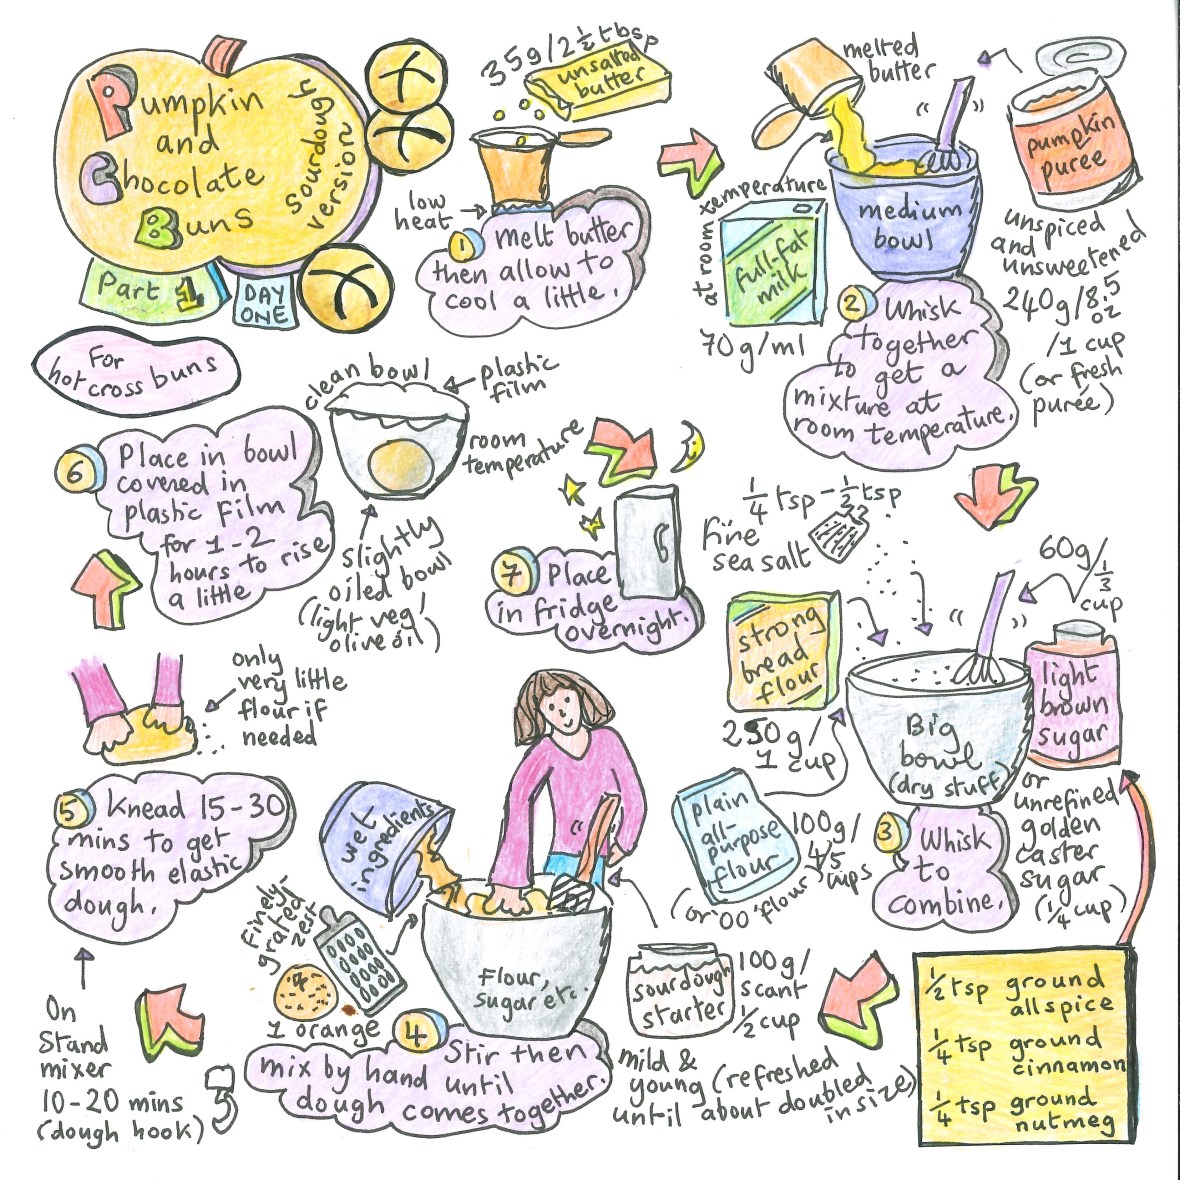 Pumpkin
and
Chocolate
Buns
Sourdough
version
Part 1
DAY
ONE
For
hot cross buns
35g/2½ tbsp
unsalted
butter
low
heat
1 Melt butter
then allow to
cool a little.
melted
butter
at room temperature
full-fat
milk
70g/ml
medium
bowl
pumpkin
puree
unspiced
and
unsweetened
240g/8.5
oz
/1 cup
(or fresh
purée)
2 Whisk
together
to get a
mixture at
room temperature.
¼ tsp - ½ tsp
fine
sea salt
60g/
⅓
cup
strong
bread
flour
250g/
1 cup
light
brown
sugar
Big
bowl
(dry stuff)
or
unrefined
golden
caster
sugar
(¼ cup)
plain
all-
purpose
flour
100g/
4/5
cups
(or '00' flour)
3 Whisk
to
combine.
½ tsp ground
allspice
¼ tsp ground
cinnamon
¼ tsp ground
nutmeg
wet
ingredients
Finely-
grated
zest
1 orange
Flour,
sugar etc.
sourdough
starter
100g/
scant
½ cup
mild &
young (refreshed
until about doubled
in size)
4 Stir then
mix by hand until
dough comes together.
only
very little
flour if
needed
5 Knead 15-30
mins to get
smooth elastic
dough.
On
Stand
mixer
10-20 mins
(dough hook)
6 Place in bowl
covered in
plastic film
for 1-2
hours to rise
a little
clean bowl
plastic
film
room
temperature
slightly
oiled bowl
(light veg/
olive oil)
7 Place
in fridge
overnight.